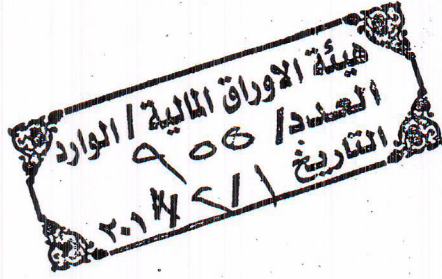 هيئة الاوراق المالية / الوارد
العدد / ٩٥٥
التاريخ ١ / ٢ / ٢٠١٧